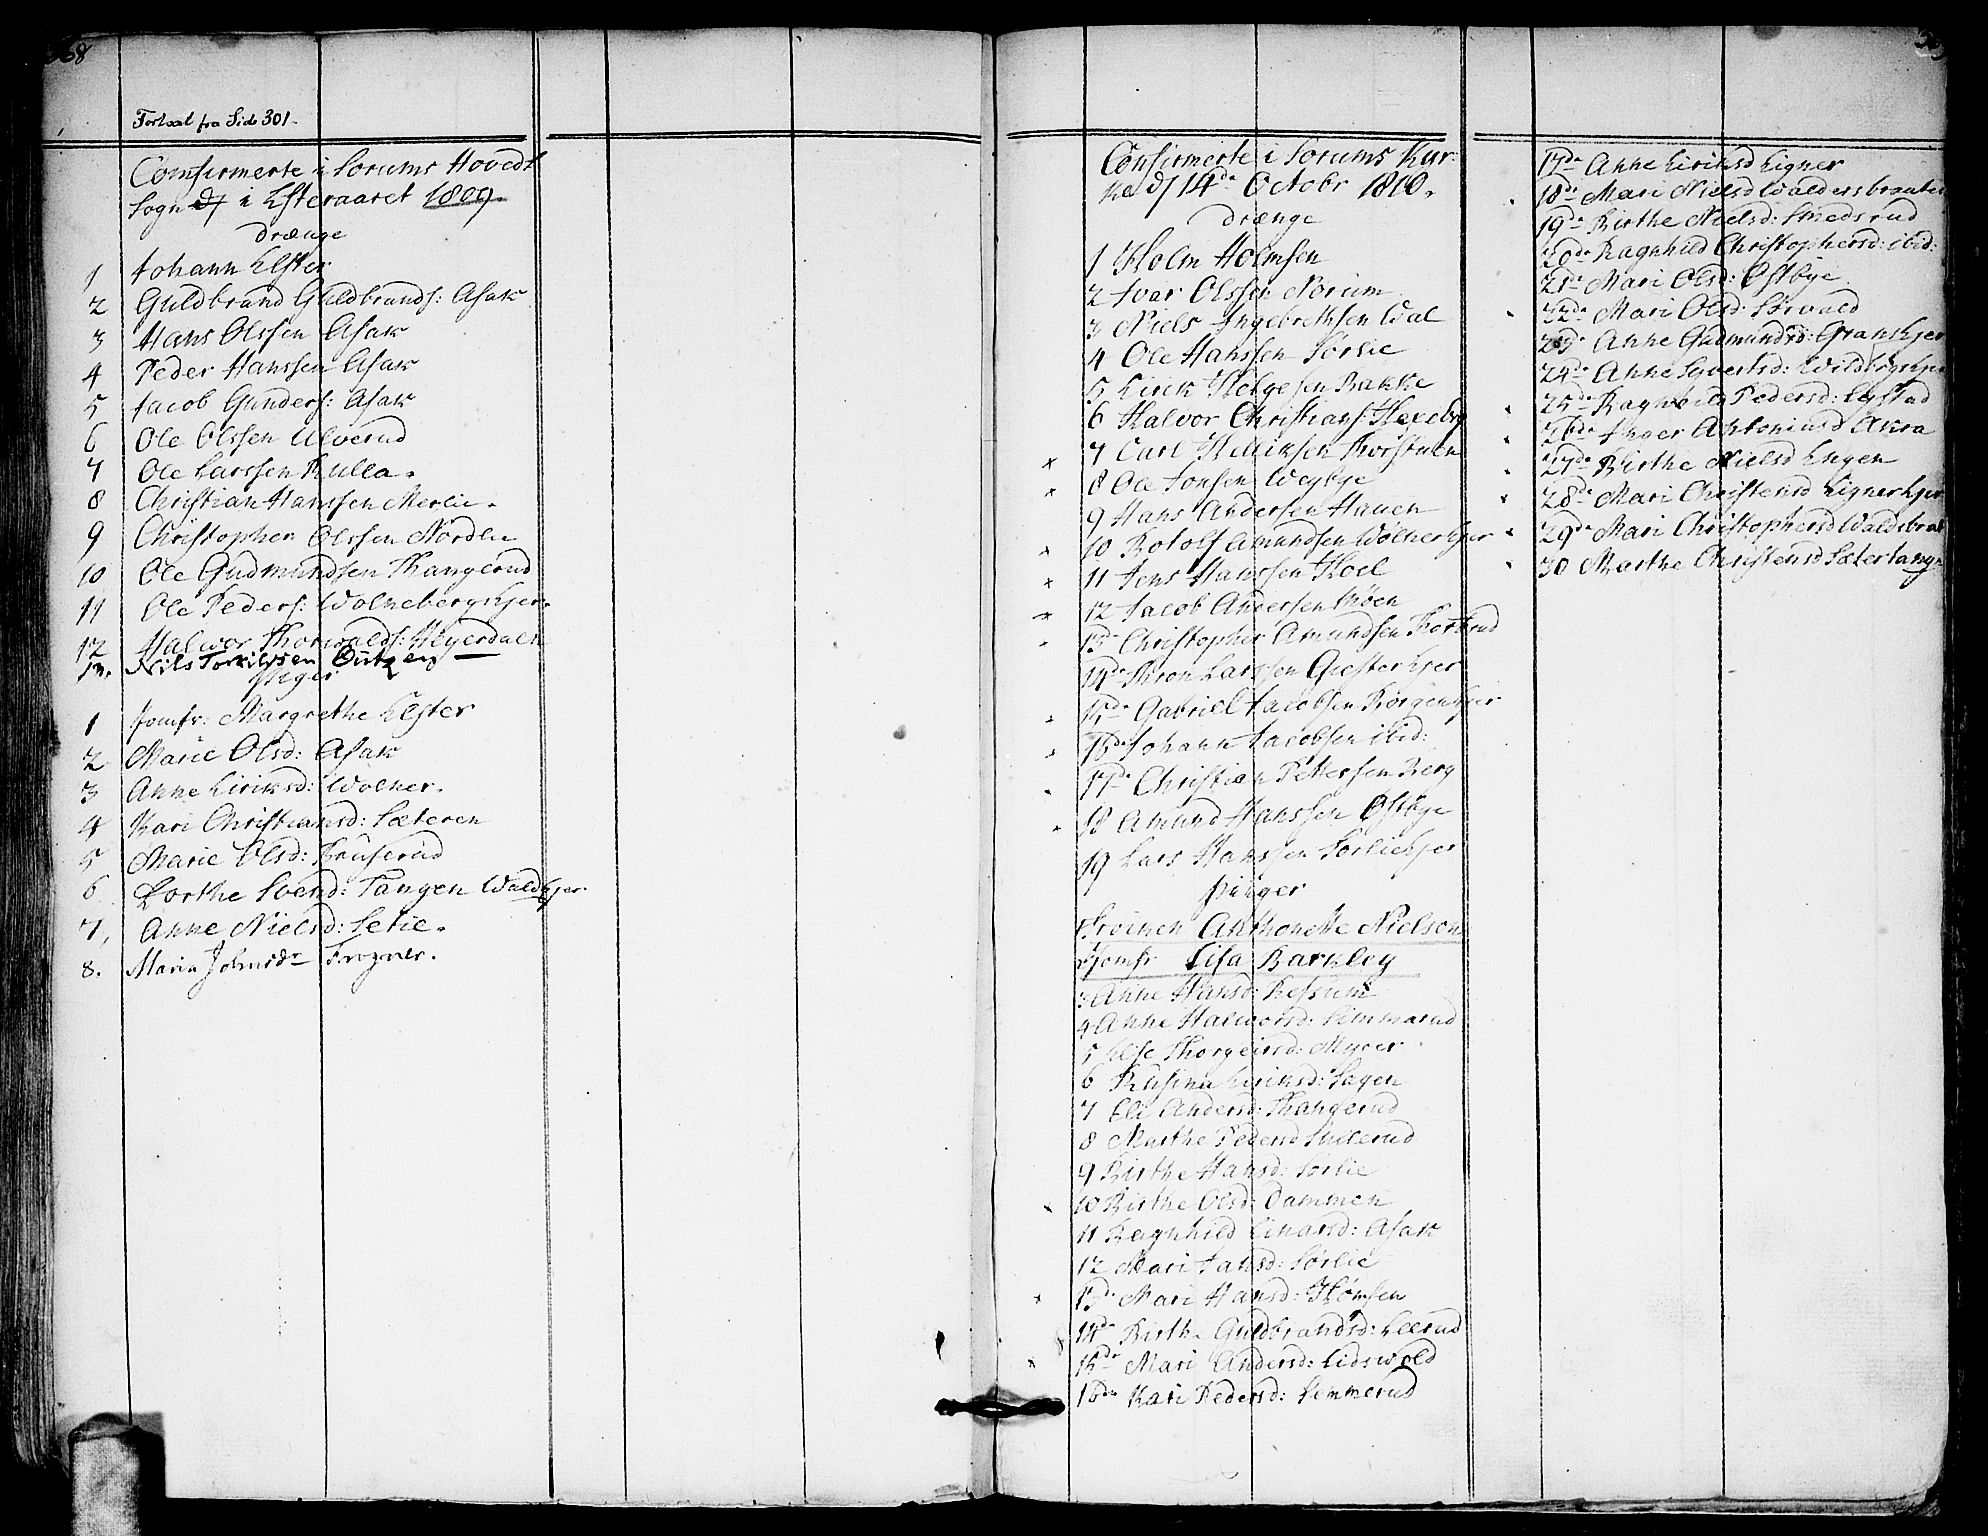 368
Fortsat fra Side 301.
Confirmerte i Sorums Hoved
Sogn d/ i Efteraaret 1809.
drænge
1 Johann Elster
2 Guldbrand Guldbrands: Asak
3 Hans Olssen Asak
4 Peder Hanssen Asak
5 Jacob Gunders: Asak
6 Ole Olssen Ulverud
7 Ole Larssen Kulla.
8 Christian Hanssen Merlie.
9 Christopher Olssen Nordlie
10 Ole Gudmundsen Thangerud
11 Ole Peders: Wolnebergskjer.
12 Halwor Thorwalds: Heyerdalen
Nils Torkilssen
Piger
1 Jomfr: Margrethe Elster
2 Marie Olsd: Asak
3 Anne Eiriksd: Wolner.
4 Kari Christiansd: Sæteren
5 Marie Olsd: Kruserud
6 Dorthe Svend: Tangen Waldkjer.
7. Anne Nielsd: Setie.
8. Maria Johnsdr Frogner.
Confirmerte i Sorums Kir:
ke d/ 14de Octobr 1810.
drænge
1 Holm Holmsen
2 Ivar Olssen Norum
3 Niels Ingebrethsen Wal
4 Ole Hanssen Sørlie
5 Eirik Helgesen Bakke
6 Halvor Christians: Hexeberg
7 Carl Thorstuen
8 Ole Jonsen Weybye
9 Hans Andersen Hauen
10 Rololf Amundsen Wølnerkjer
11 Jens Hanssen Hoel
12 Jacob Andersen Moen
13de Christopher Amundsen
14de Larssen Giesterkjer
15de Gabriel Jacobsen Børgenkjer
16de Johann Jacobsen ibid:
17de Christian Pettersen Berg
18 Amund Hanssen Østbye
19 Lars Hanssen Sørliekjer
Piiger
Frøiken Anthonette Nielson
Jomfr Lisa Barkley
3 Anne Hansd: Refsum
4 Anne Halworsd: Simmerud
5 Else Thorgeirsd: Myrer
6 Eiriksd: Hagen
7 Eli Andersd: Thangerud
8 Marthe Pedersd Sullerud
9 Birthe Hansd: Sørlie
10 Birthe Olsd: Dammen
11 Ragnhild Einarsd: Asak
12 Mari Jansd: Sørlie
13de Mari Hansd: Homsen
14de Birthe Guldbrandsd: Leerud
15de Mari Andersd: Eidswold
16de Kari Pedersd: Semmerud
17de Anne Eiriksd Eigner
18de Mari Nielsd Waldersbraaten
19de Birthe Nielsd: Smedsrud
20de Ragnhild Christophersd: ibid:
21de Mari Olsd: Østbye
22de Mari Olsd: Sørvald
23de Anne Gudmundsd: Granskjer
24de Anne Syvertsd:
25de Ragnhild Pedersd: Lystad
26de Inger Antoniusd Akra
27de Birthe Nielsd Engen
28de Mari Christensd Eignerkjer
29de Mari Christophersd Waldsbraa
30 Marthe Christensd Sætertangen